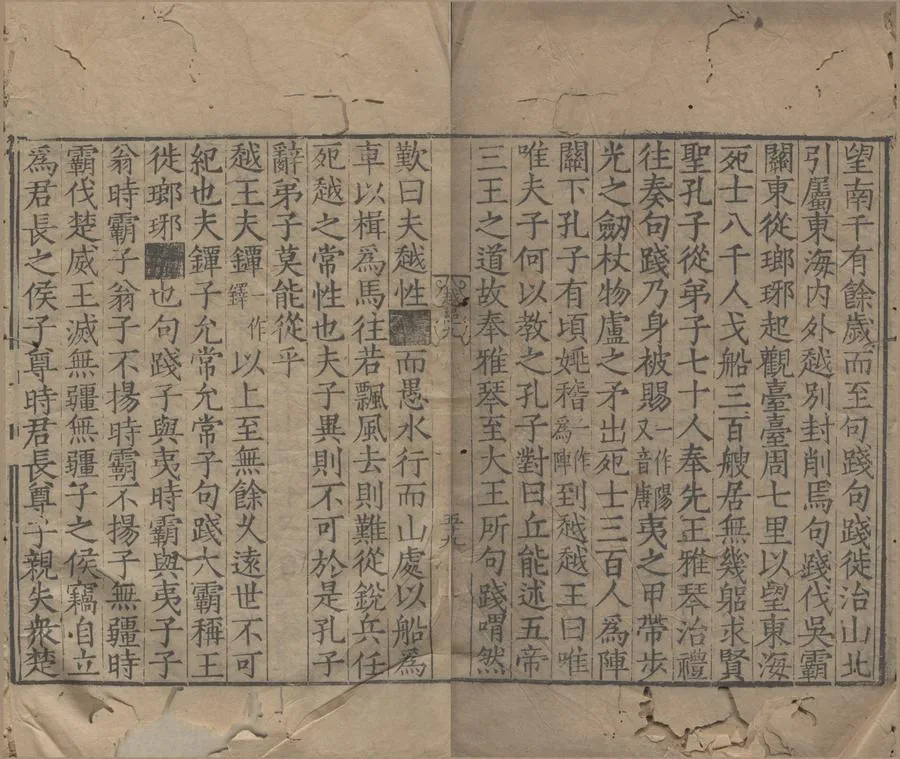 望南千有餘歲而至句踐句踐徙治山北
引屬東海内外越別封削焉句踐伐吳霸
關東從瑯琊起觀臺臺周七里以望東海
死士八千人戈船三百艘居無幾躬求賢
聖孔子從弟子七十人奉先王雅琴治禮
往奏句踐乃身被賜一作陽又音唐夷之甲帶步
光之劒杖物盧之矛出死士三百人爲陣
關下孔子有頃姚稽一作爲陣到越越王曰唯唯
夫子何以教之孔子對曰丘能述五帝
三王之道故奉雅琴至大王所句踐喟然
歎曰夫越性而愚水行而山處以船爲
車以楫爲馬往若飄風去則難從銳兵任
死越之常性也夫子異則不可於是孔子
辭弟子莫能從乎
越王夫鐔一作鐸以上至無餘久遠世不可
紀也夫鐔子允常允常子句踐大霸稱王
徙瑯琊也句踐子與夷時霸與夷子子
翁時霸子翁子不揚時霸不揚子無疆時
霸伐楚威王滅無疆無疆子之侯竊自立
爲君長之侯子尊時君長尊子親失衆楚
五十九